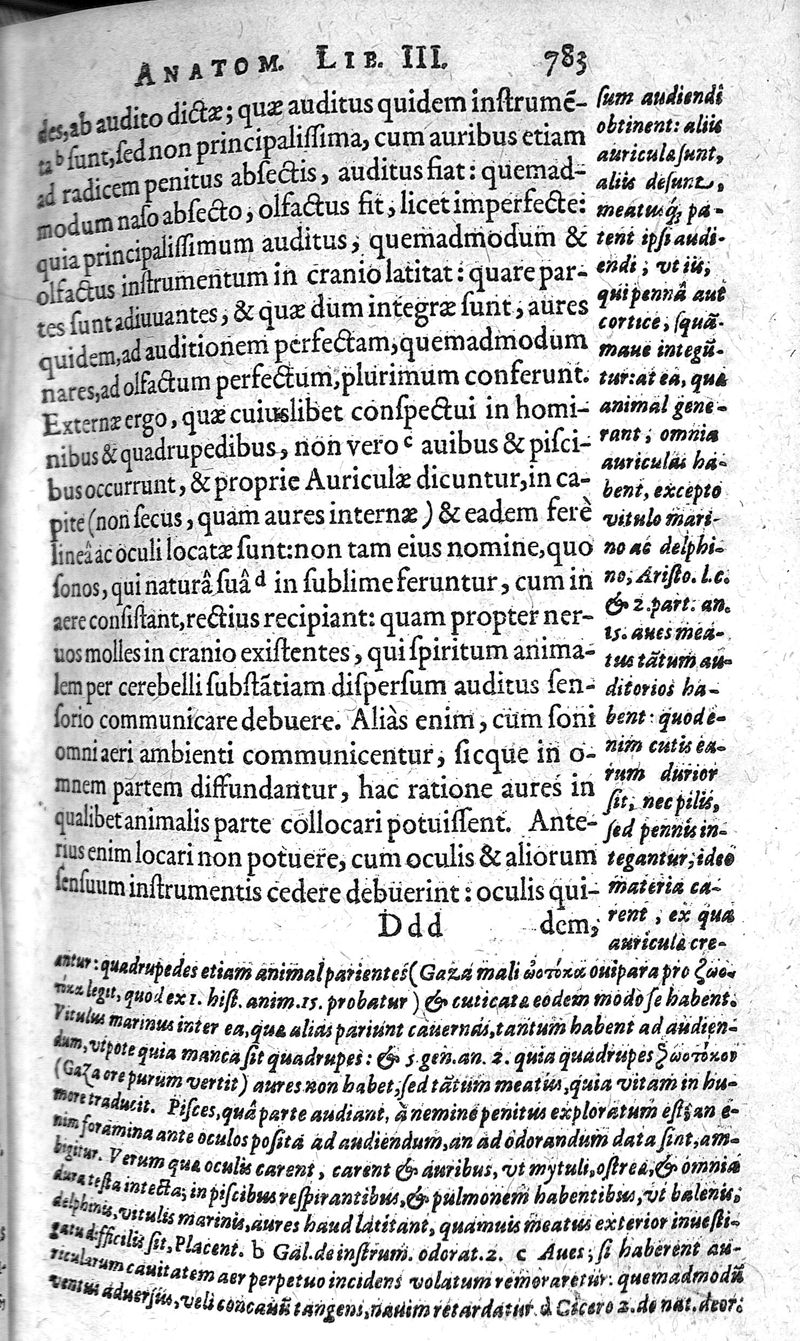 ANATOM. LIB. III. 783
des, ab audito dictæ; quæ auditus quidem inſtrumē-
ta ᵇ ſunt, ſed non principaliſſima, cum auribus etiam
ad radicem penitus abſectis, auditus fiat: quemad-
modum naſo abſecto, olfactus fit, licet imperfecte:
quia principaliſſimum auditus, quemadmodum &
olfactus inſtrumentum in cranio latitat: quare par-
tes ſunt adiuuantes, & quæ dum integræ ſunt, aures
quidem, ad auditionem perfectam, quemadmodum
nares, ad olfactum perfectum, plurimum conferunt.
Externæ ergo, quæ cuiuslibet conſpectui in homi-
nibus & quadrupedibus, non vero ᶜ auibus & piſci-
bus occurrunt, & proprie Auriculæ dicuntur, in ca-
pite (non ſecus, quam aures internæ) & eadem ferè
lineâ ac oculi locatæ ſunt: non tam eius nomine, quo
ſonos, qui naturâ ſuâ ᵈ in ſublime feruntur, cum in
aere conſiſtant, rectius recipiant: quam propter ner-
uos molles in cranio exiſtentes, qui ſpiritum anima-
lem per cerebelli ſubſtātiam diſperſum auditus ſen-
ſorio communicare debuere. Aliàs enim, cum ſoni
omni aeri ambienti communicentur, ſicque in o-
mnem partem diffundantur, hac ratione aures in
qualibet animalis parte collocari potuiſſent. Ante-
rius enim locari non potuere, cum oculis & aliorum
ſenſuum inſtrumentis cedere debuerint: oculis qui-
Ddd dem,
ſum audiendi
obtinent: aliis
auriculæ ſunt,
aliis deſunt,
meatusq́; pa-
tent ipſi audi-
endi; vt iis,
qui pennâ aut
cortice, ſquā-
maue integū-
tur: at ea, quæ
animal gene-
rant, omnia
auriculas ha-
bent, excepto
vitulo mari-
no ac delphi-
no, Ariſto. l.c.
& 2. part. an.
15. aues mea-
tus tātum au-
ditorios ha-
bent: quod e-
nim cutis ea-
rum durior
ſit, nec pilis,
ſed pennis in-
tegantur, ideo
materia ca-
rent, ex qua
auriculæ cre-
antur: quadrupedes etiam animal parientes (Gaza mali ὠοτόκα ouipara pro ζωο-
τόκα legit, quod ex 1. hiſt. anim. 15. probatur) & cuticatæ eodem modo ſe habent.
Vitulus marinus inter ea, quæ alias pariunt cauernas, tantum habent ad audien-
dum, vtpote quia manca ſit quadrupes: & 5. gen. an. 2. quia quadrupes ζωοτόκον
(Gaza ore purum vertit) aures non habet, ſed tātum meatus, quia vitam in hu-
more traducit. Piſces, quâ parte audiant, à nemine penitus exploratum eſt; an e-
nim foramina ante oculos poſita ad audiendum, an ad odorandum data ſint, am-
bigitur. Verum quæ oculis carent, carent & auribus, vt mytuli, oſtrea, & omnia
dura teſta intecta; in piſcibus reſpirantibus, & pulmonem habentibus, vt balenis,
delphinis, vitulis marinis, aures haud latitant, quamuis meatus exterior inueſti-
gatu difficilis ſit, Placent. b Gal. de inſtrum. odorat. 2. c Aues, ſi haberent au-
ricularum cauitatem aer perpetuo incidens volatum remoraretur: quemadmodū
ventus aduerſus, veli concauū tangens, nauim retardatur. d Cicero 2. de nat. deor: